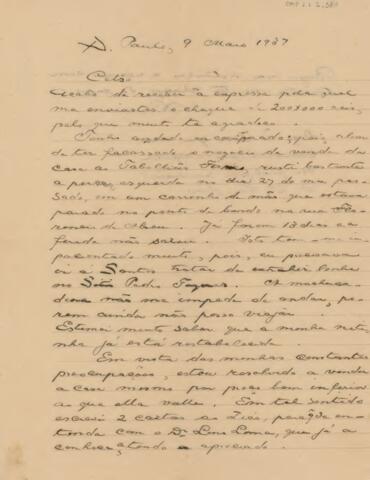 S. Paulo, 9 Março 1937
Celso
Acabo de receber a expressa pela qual
me enviastes o cheque de 200$000 reis,
pelo que muito te agradeço.
Tenho andado pois, alem
de ter fracassado o negocio da venda da
casa ao Tabellião bastante
a perna esquerda no dia 27 do mez pas-
sado, em um carrinho de mão que estava
parado no ponto de bonde na rua Flo-
de Abreu. Já foram 13 dias e a
ferida não sarou. Isto tem-me im-
pacientado muito, pois, eu precisava
ir a Santos tratar de
no São Pedro A machuca-
dura não me impede de andar, po-
rem ainda não posso viajar.
Estimei muito saber que a minha neti-
nha já está restabelecida.
Em vista das minhas constantes
preocupações, estou resolvido a vender
a casa mesmo por preço bem inferior
ao que ella valle. Em tal sentido
escrevi 2 cartas ao para que en-
tenda com o Dr. que já a
conhece,